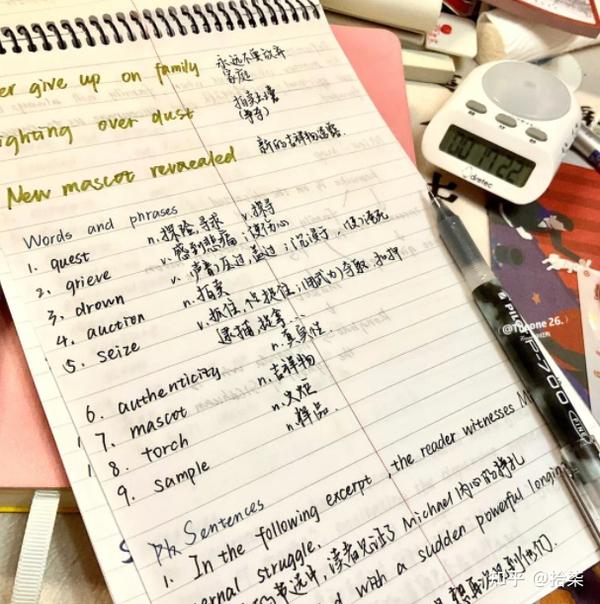 er give up on family 永远不要放弃
家庭
ighting over dust 拍卖土壤
(争夺)
New mascot revaealed 新的吉祥物透露.
Words and phrases
1. quest n.探险,寻求 v.探寻
2. grieve v.感到悲痛,使伤心
3. drown v.声音压过,盖过;沉浸于,使淹死
4. auction n.拍卖
5. seize v.抓住,捉住;(用武力)夺取,扣押
逮捕
6. authenticity n.真实性
7. mascot n.吉祥物
8. torch n.火炬
9. sample n.样品.
Sentences
1. In the following excerpt, the reader witnesses M
ernal struggle.
选中,读者见证了 Michael 内心的挣扎
d with a sudden powerful longing
00 17 22
dretec
PILOT
P-700
FINE
@Tyeone 26.
知乎 @拾柒